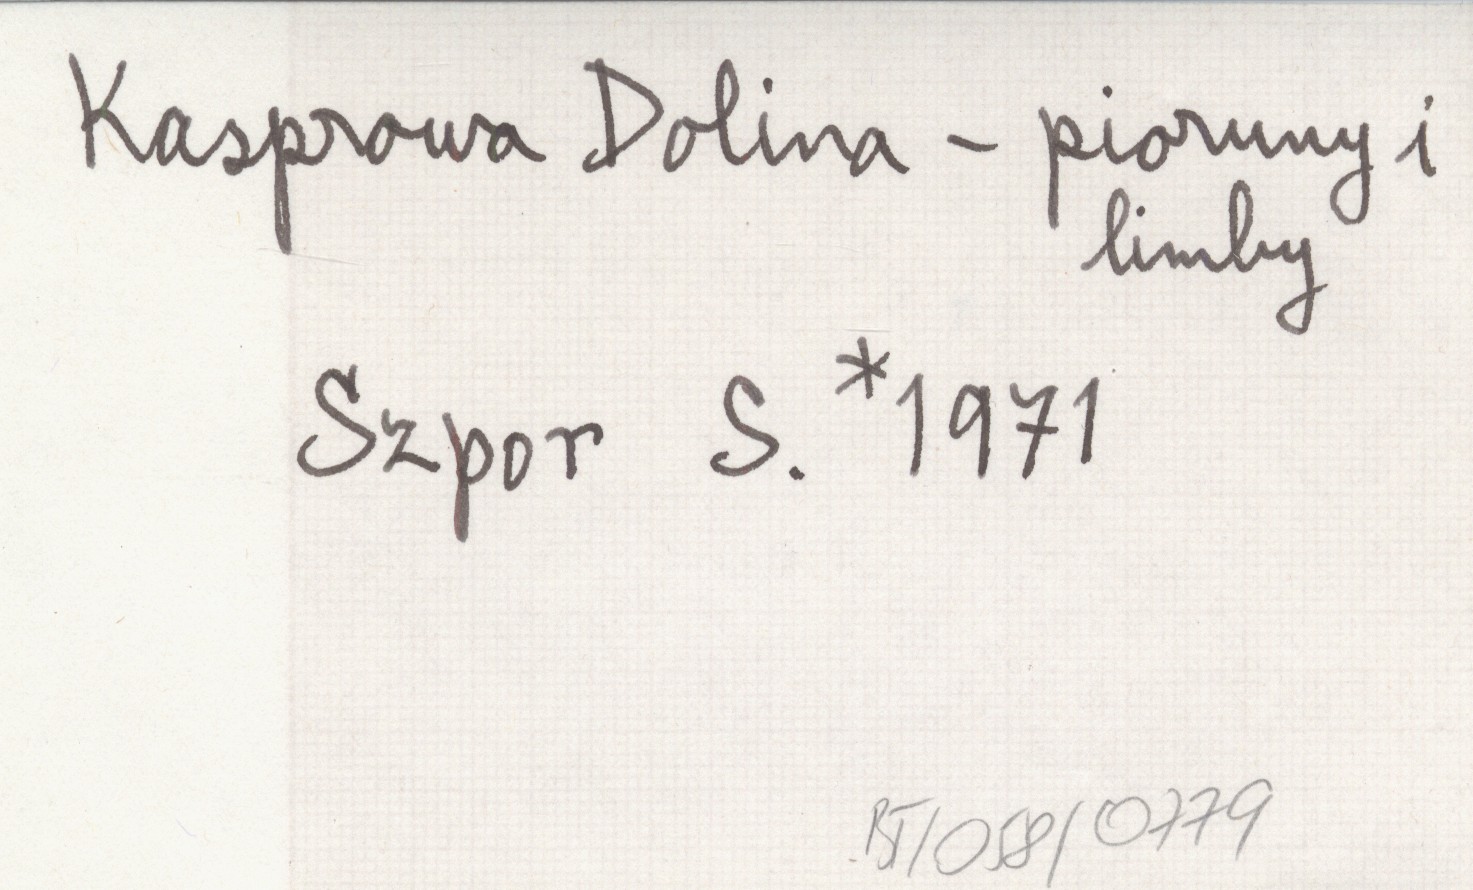 Kasprowa Dolina – pioruny i
limby
Szpor S. *1971
BT/058/0779